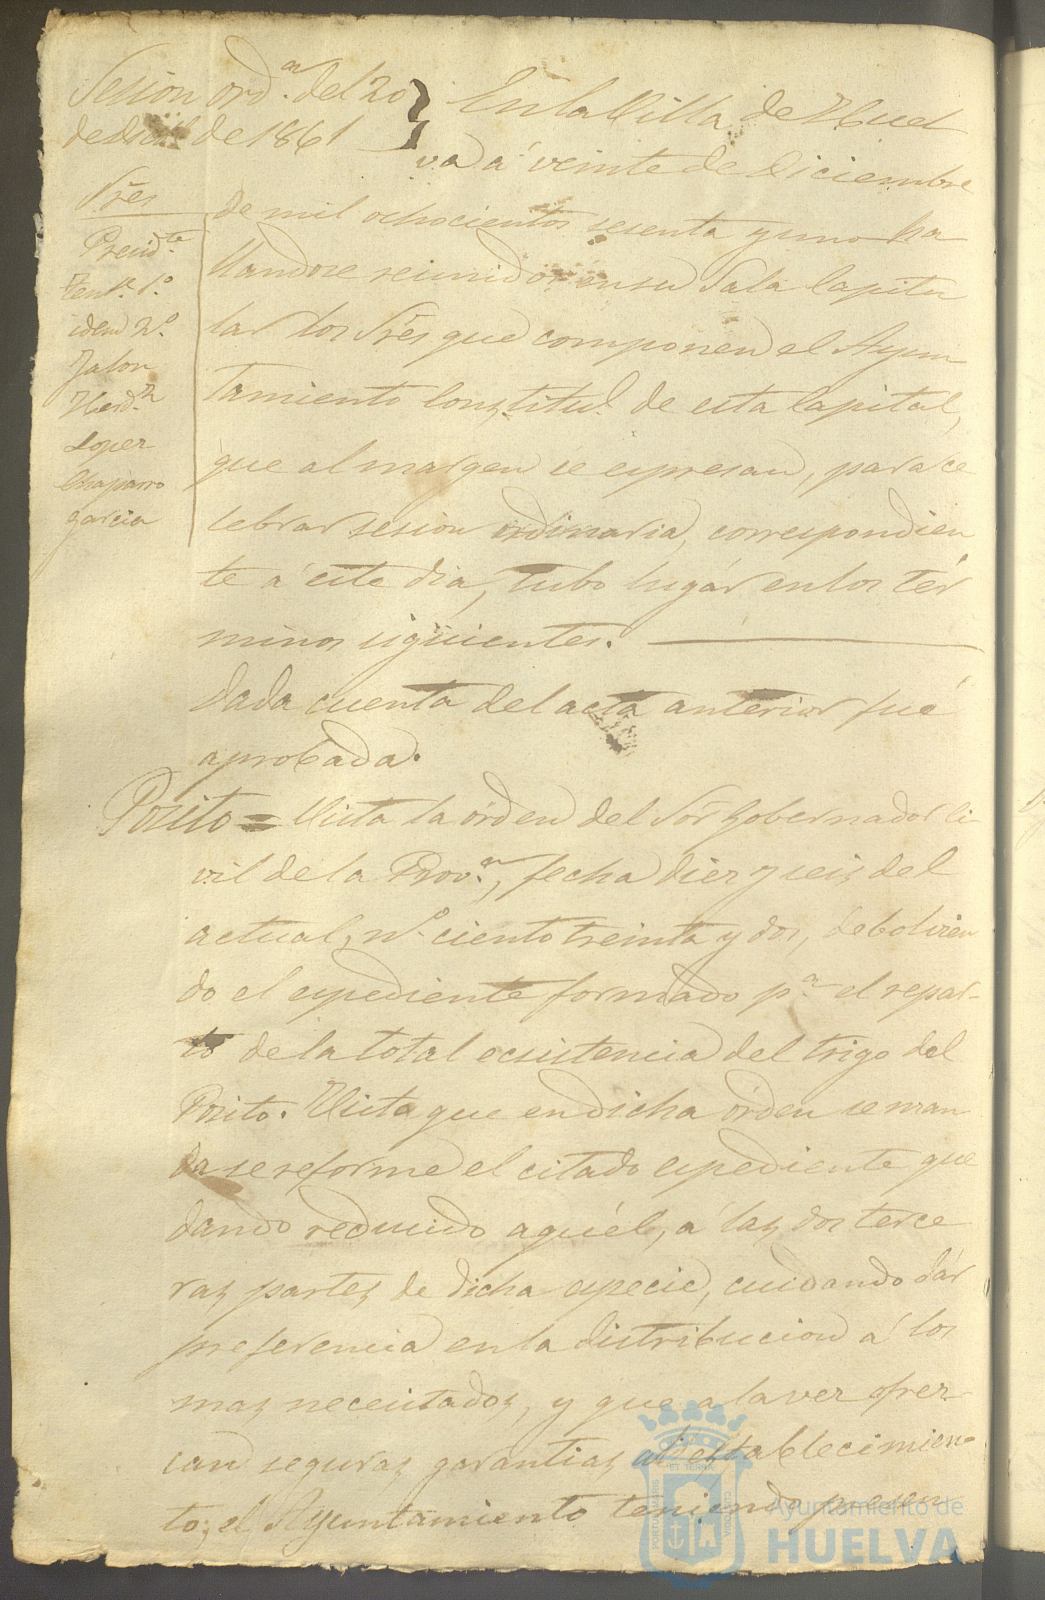 Sesion ord.ª del 20
de Dic.e de 1861
Sres
Presid.te
Ten.te 1.º
idem 2.º
Jalon
Hered.ª
Lopez
Chaparro
Garcia
En la Villa de Huel
va á veinte de Diciembre
de mil ochocientos sesenta y uno ha
llandose reunidos en su Sala Capitu
lar los Sres que componen el Ayun
tamiento Constitul. de esta Capital,
que al margen se espresan, para ce
lebrar sesion ordinaria, correspondien
te á este dia, tubo lugár en los tér
minos siguientes.
Dada cuenta del acta anterior fué
aprobada.
Posito = Vista la órden del Sór Gobernador Ci
vil de la Prov.ª, fecha diez y seis del
actual, nº. ciento treinta y dos, debolvien
do el espediente formado p.ª el repar-
to de la total ecsistencia del trigo del
Posito. Vista que en dicha órden se man
da se reforme el citado espediente que
dando reducido aquél, á las dos terce
ras partes de dicha especie, cuidando dár
preferencia en la distribucion á los
mas necesitados, y que a la vez ofrez
can seguras garantias al establecimien-
to; el Ayuntamiento teniendo presen
Ayuntamiento de
HUELVA